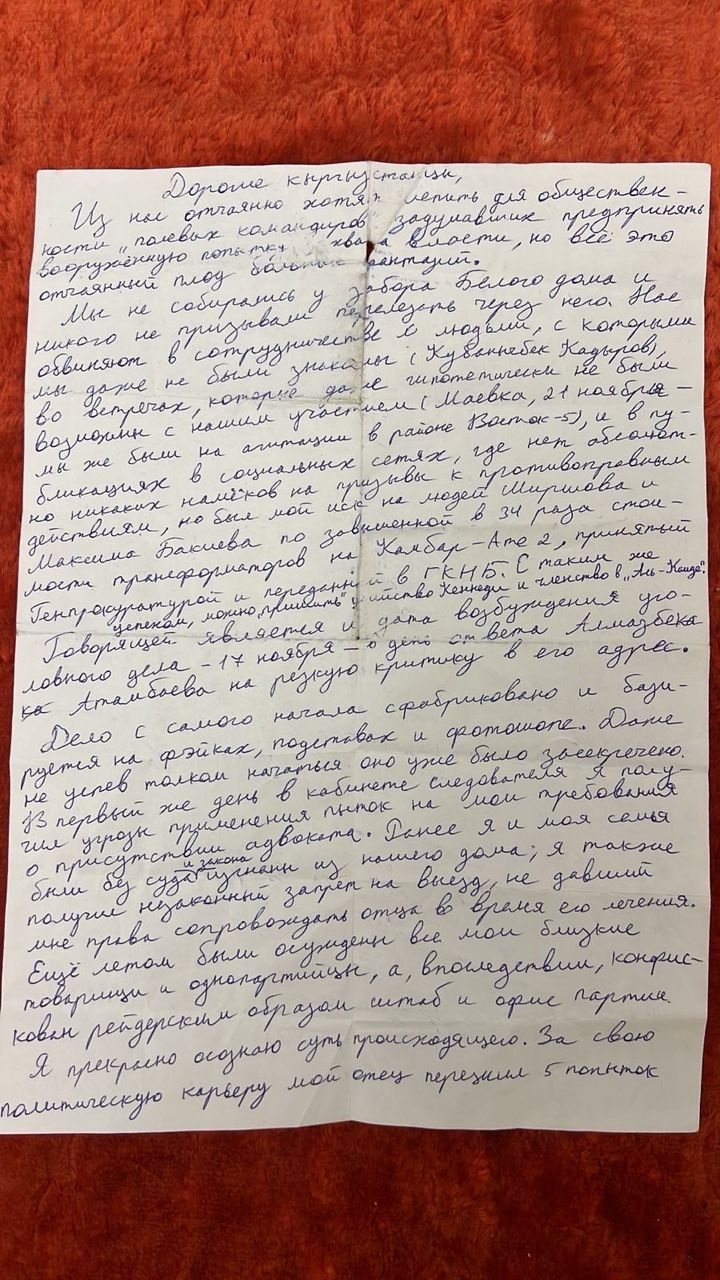 Дорогие кыргызстанцы,
Из нас отчаянно хотят слепить для обществен-
ности „полевых командиров" задумавших предпринять
вооружённую попытку хвата власти, но всё это
отчаянный плод больных фантазий.
Мы не собирались у забора Белого дома и
никого не призывали перелезать через него. Нас
обвиняют в сотрудничестве с людьми, с которыми
мы даже не были знакомы (Кубанычбек Кадыров),
во встречах, которые даже гипотетически не были
возможны с нашим участием (Маевка, 21 ноября –
мы же были на агитации в районе Восток-5), и в пу-
бликациях в социальных сетях, где нет абсолют-
но никаких намёков на призывы к противоправным
действиям, но был мой иск на людей Ширшова и
Максима Бакиева по завышенной в 34 раза стои-
мости трансформаторов на Камбар-Ате 2, принятый
Генпрокуратурой и переданный в ГКНБ. С таким же
успехом, можно „пришить" убийство Кеннеди и членство в „Аль-Каиде".
Говорящей является и дата возбуждения уго-
ловного дела – 17 ноября – в день ответа Алмазбека
Атамбаева на резкую критику в его адрес.
Дело с самого начала сфабриковано и бази-
руется на фэйках, подставах и фотошопе. Даже
не успев толком начаться оно уже было засекречено.
В первый же день в кабинете следователя я полу-
чил угрозы применения пыток на мои требования
о присутствии адвоката. Ранее я и моя семья
были без суда и закона изгнаны из нашего дома; я также
получил незаконный запрет на выезд, не давший
мне права сопровождать отца во время его лечения.
Ещё летом были осуждены все мои близкие
товарищи и однопартийцы, а, впоследствии, конфис-
кован рейдерским образом штаб и офис партии.
Я прекрасно осознаю суть происходящего. За свою
политическую карьеру мой отец пережил 5 попыток